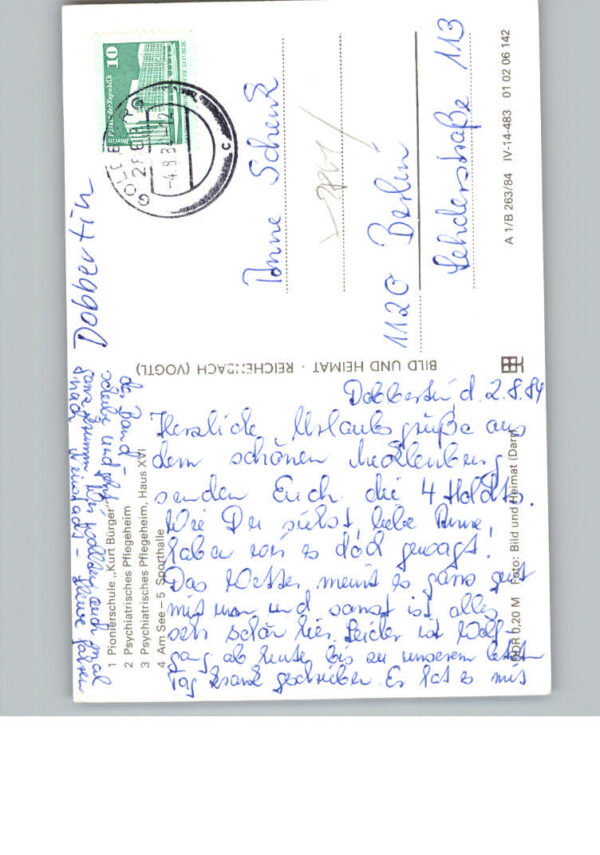 Dobbertin d. 2.8.84
Herzliche Urlaubsgrüße aus
dem schönen Mecklenburg
senden Euch die 4
Wie Du siehst, liebe Anne,
haben wir es doch gewagt!
Das Wetter meint es ganz gut
mit uns und sonst ist alles
sehr schön hier. Leider ist Wolf-
gang ab heute bis zu unserem letzten
Tag krank geschrieben. Er hat es mit
der Band-
scheibe und
ganz krumm. Wir wollten auch mal
nach fahren
Dobbertin
1 Pionierschule „Kurt Bürger"
2 Psychiatrisches Pflegeheim
3 Psychiatrisches Pflegeheim, Haus XVI
4 Am See – 5 Sporthalle
BILD UND HEIMAT · REICHENBACH (VOGTL)
DDR 0,20 M Foto: Bild und Heimat (Darr)
10
Palast der Republik
Berlin
GOLDBERG
286
-4.8.84
c
Anne Schenk
1120 Berlin
Lehderstraße 113
A 1/B 263/84 IV-14-483 01 02 06 142